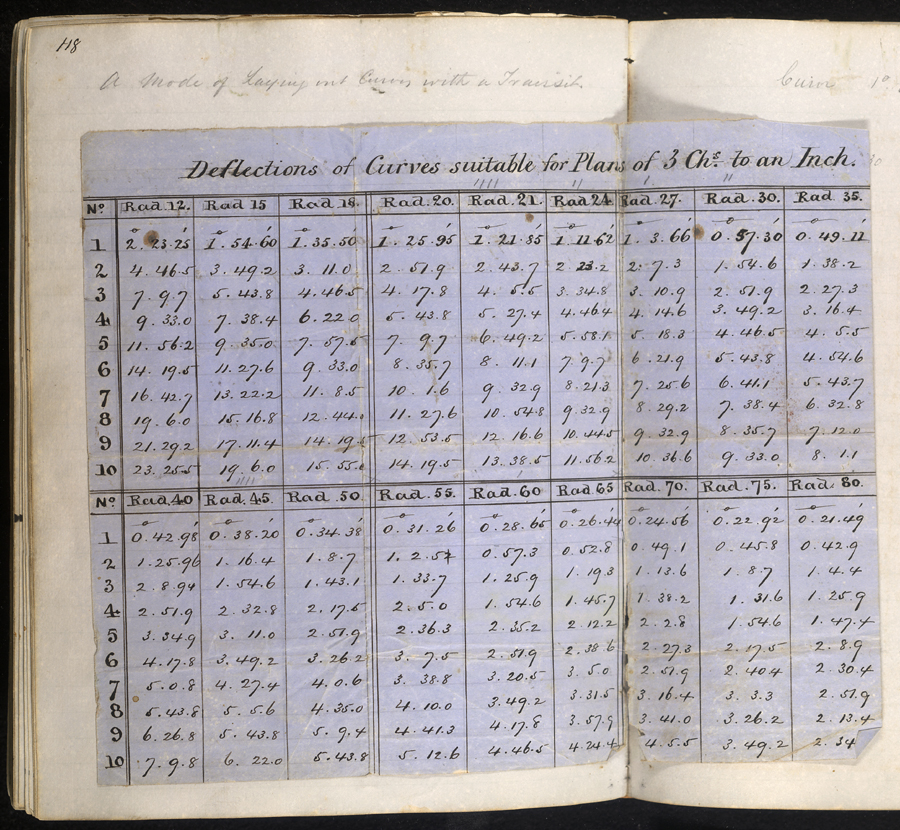 118
A Mode of Laying out Curves with a Transit
Curve 1°
Deflections of Curves suitable for Plans of 3 Chs. to an Inch.
No. Rad. 12. Rad 15 Rad. 18. Rad. 20. Rad. 21. Rad. 24 Rad. 27. Rad. 30. Rad. 35.
1 2. 23.25 1. 54.60 1. 35.50 1. 25.95 1. 21.85 1. 11.62 1. 3.66 0. 57.30 0. 49.11
2 4. 46.5 3. 49.2 3. 11.0 2. 51.9 2. 43.7 2 23.2 2. 7.3 1. 54.6 1. 38.2
3 7. 9.7 5. 43.8 4. 46.5 4. 17.8 4. 5.5 3. 34.8 3. 10.9 2. 51.9 2. 27.3
4 9. 33.0 7. 38.4 6. 22.0 5. 43.8 5. 27.4 4. 46.4 4. 14.6 3. 49.2 3. 16.4
5 11. 56.2 9. 35.0 7. 57.5 7. 9.7 6. 49.2 5. 58.1 5. 18.3 4. 46.5 4. 5.5
6 14. 19.5 11. 27.6 9. 33.0 8. 35.7 8. 11.1 7. 9.7 6. 21.9 5. 43.8 4. 54.6
7 16. 42.7 13. 22.2 11. 8.5 10. 1.6 9. 32.9 8. 21.3 7. 25.6 6. 41.1 5. 43.7
8 19. 6.0 15. 16.8 12. 44. 11. 27.6 10. 54.8 9. 32.9 8. 29.2 7. 38.4 6. 32.8
9 21. 29.2 17. 11.4 14. 19.5 12. 53.5 12. 16.6 10. 44.5 9. 32.9 8. 35.7 7. 12.0
10 23. 25.5 19. 6.0 15. 55. 14. 19.5 13. 38.5 11. 56.2 10. 36.6 9. 33.0 8. 1.1
No. Rad. 40 Rad. 45. Rad. 50. Rad. 55. Rad. 60 Rad. 65 Rad. 70. Rad. 75. Rad. 80.
1 0. 42.98 0. 38.20 0. 34.38 0. 31.26 0. 28.65 0. 26.44 0. 24.56 0. 22.92 0. 21.49
2 1. 25.96 1. 16.4 1. 8.7 1. 2.5 0. 57.3 0. 52.8 0. 49.1 0. 45.8 0. 42.9
3 2. 8.94 1. 54.6 1. 43.1 1. 33.7 1. 25.9 1. 19.3 1. 13.6 1. 8.7 1. 4.4
4 2. 51.9 2. 32.8 2. 17.5 2. 5.0 1. 54.6 1. 45.7 1. 38.2 1. 31.6 1. 25.9
5 3. 34.9 3. 11.0 2. 51.9 2. 36.3 2. 35.2 2. 12.2 2. 2.8 1. 54.6 1. 47.4
6 4. 17.8 3. 49.2 3. 26.2 3. 7.5 2. 51.9 2. 38.6 2. 27.3 2. 17.5 2. 8.9
7 5. 0.8 4. 27.4 4. 0.6 3. 38.8 3. 20.5 3. 5.0 2. 51.9 2. 40.4 2. 30.4
8 5. 43.8 5. 5.6 4. 35.0 4. 10.0 3. 49.2 3. 31.5 3. 16.4 3. 3.3 2. 51.9
9 6. 26.8 5. 43.8 5. 9.4 4. 41.3 4. 17.8 3. 57.9 3. 41.0 3. 26.2 2. 13.4
10 7. 9.8 6. 22.0 5. 43.8 5. 12.6 4. 46.5 4. 24.4 4. 5.5 3. 49.2 2. 34